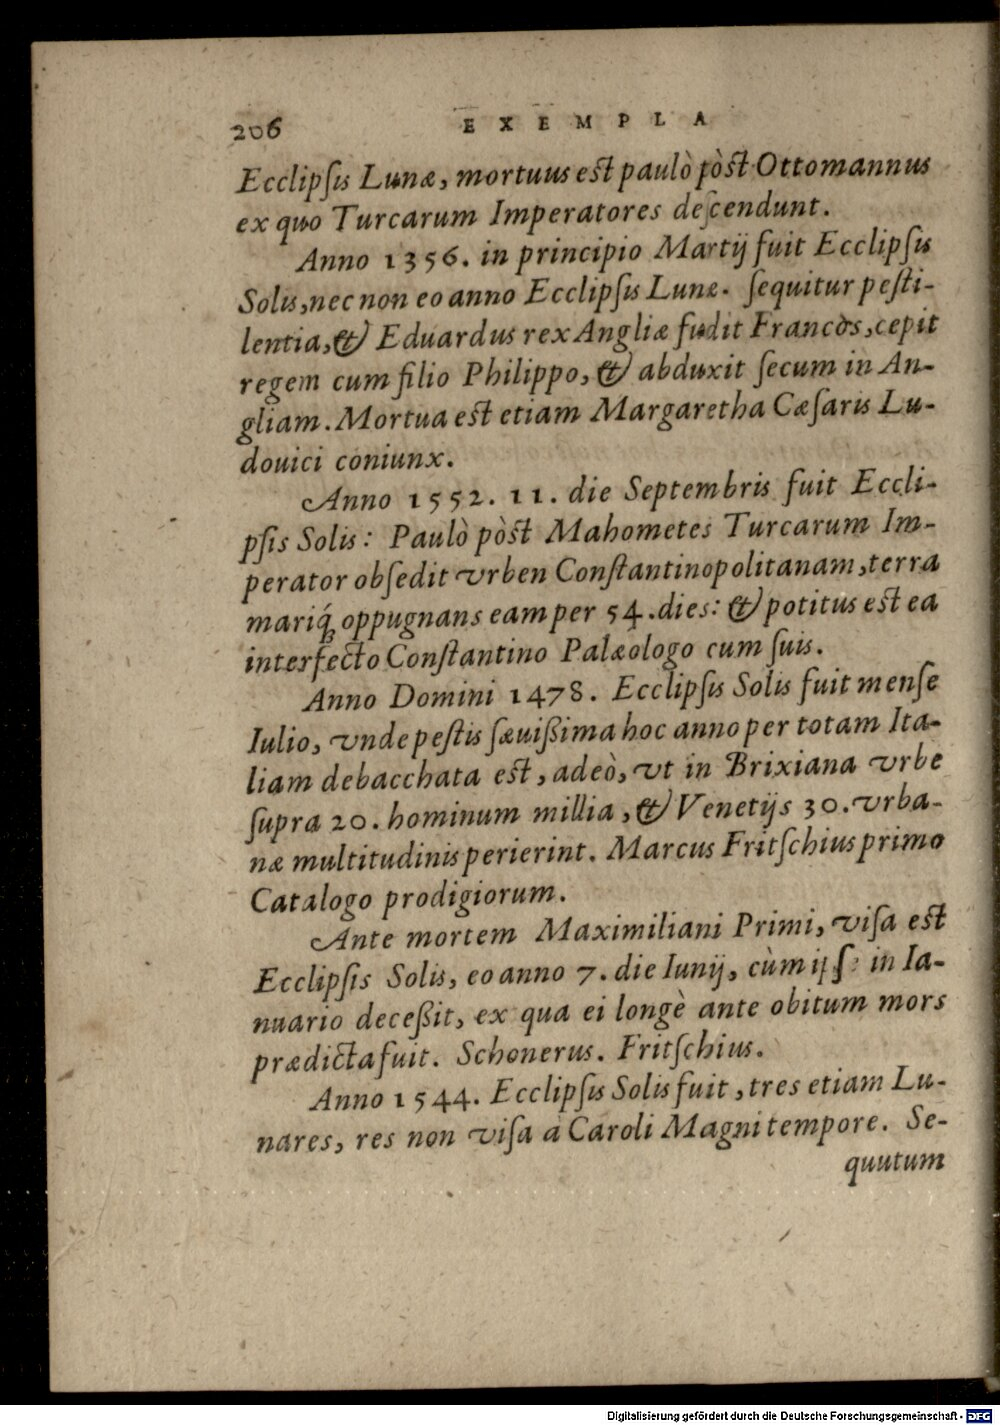 206 EXEMPLA
Ecclipſis Lunæ, mortuus eſt paulò pòſt Ottomannus
ex quo Turcarum Imperatores deſcendunt.
Anno 1356. in principio Martij fuit Ecclipſis
Solis, nec non eo anno Ecclipſis Lunæ. ſequitur peſti-
lentia, & Eduardus rex Angliæ fudit Francos, cepit
regem cum filio Philippo, & abduxit ſecum in An-
gliam. Mortua eſt etiam Margaretha Cæſaris Lu-
douici coniunx.
Anno 1552. 11. die Septembris fuit Eccli-
pſis Solis: Paulò pòſt Mahometes Turcarum Im-
perator obſedit vrben Conſtantinopolitanam, terra
mariq́ꝫ oppugnans eam per 54. dies: & potitus eſt ea
interfecto Conſtantino Palæologo cum ſuis.
Anno Domini 1478. Ecclipſis Solis fuit menſe
Iulio, vnde peſtis ſæuißima hoc anno per totam Ita-
liam debacchata eſt, adeò, vt in Brixiana vrbe
ſupra 20. hominum millia, & Venetijs 30. vrba-
næ multitudinis perierint. Marcus Fritſchius primo
Catalogo prodigiorum.
Ante mortem Maximiliani Primi, viſa eſt
Ecclipſis Solis, eo anno 7. die Iunij, cùm in Ia-
nuario deceßit, ex qua ei longè ante obitum mors
prædicta fuit. Schonerus. Fritſchius.
Anno 1544. Ecclipſis Solis fuit, tres etiam Lu-
nares, res non viſa a Caroli Magni tempore. Se-
quutum
Digitalisierung gefördert durch die Deutsche Forschungsgemeinschaft - DFG